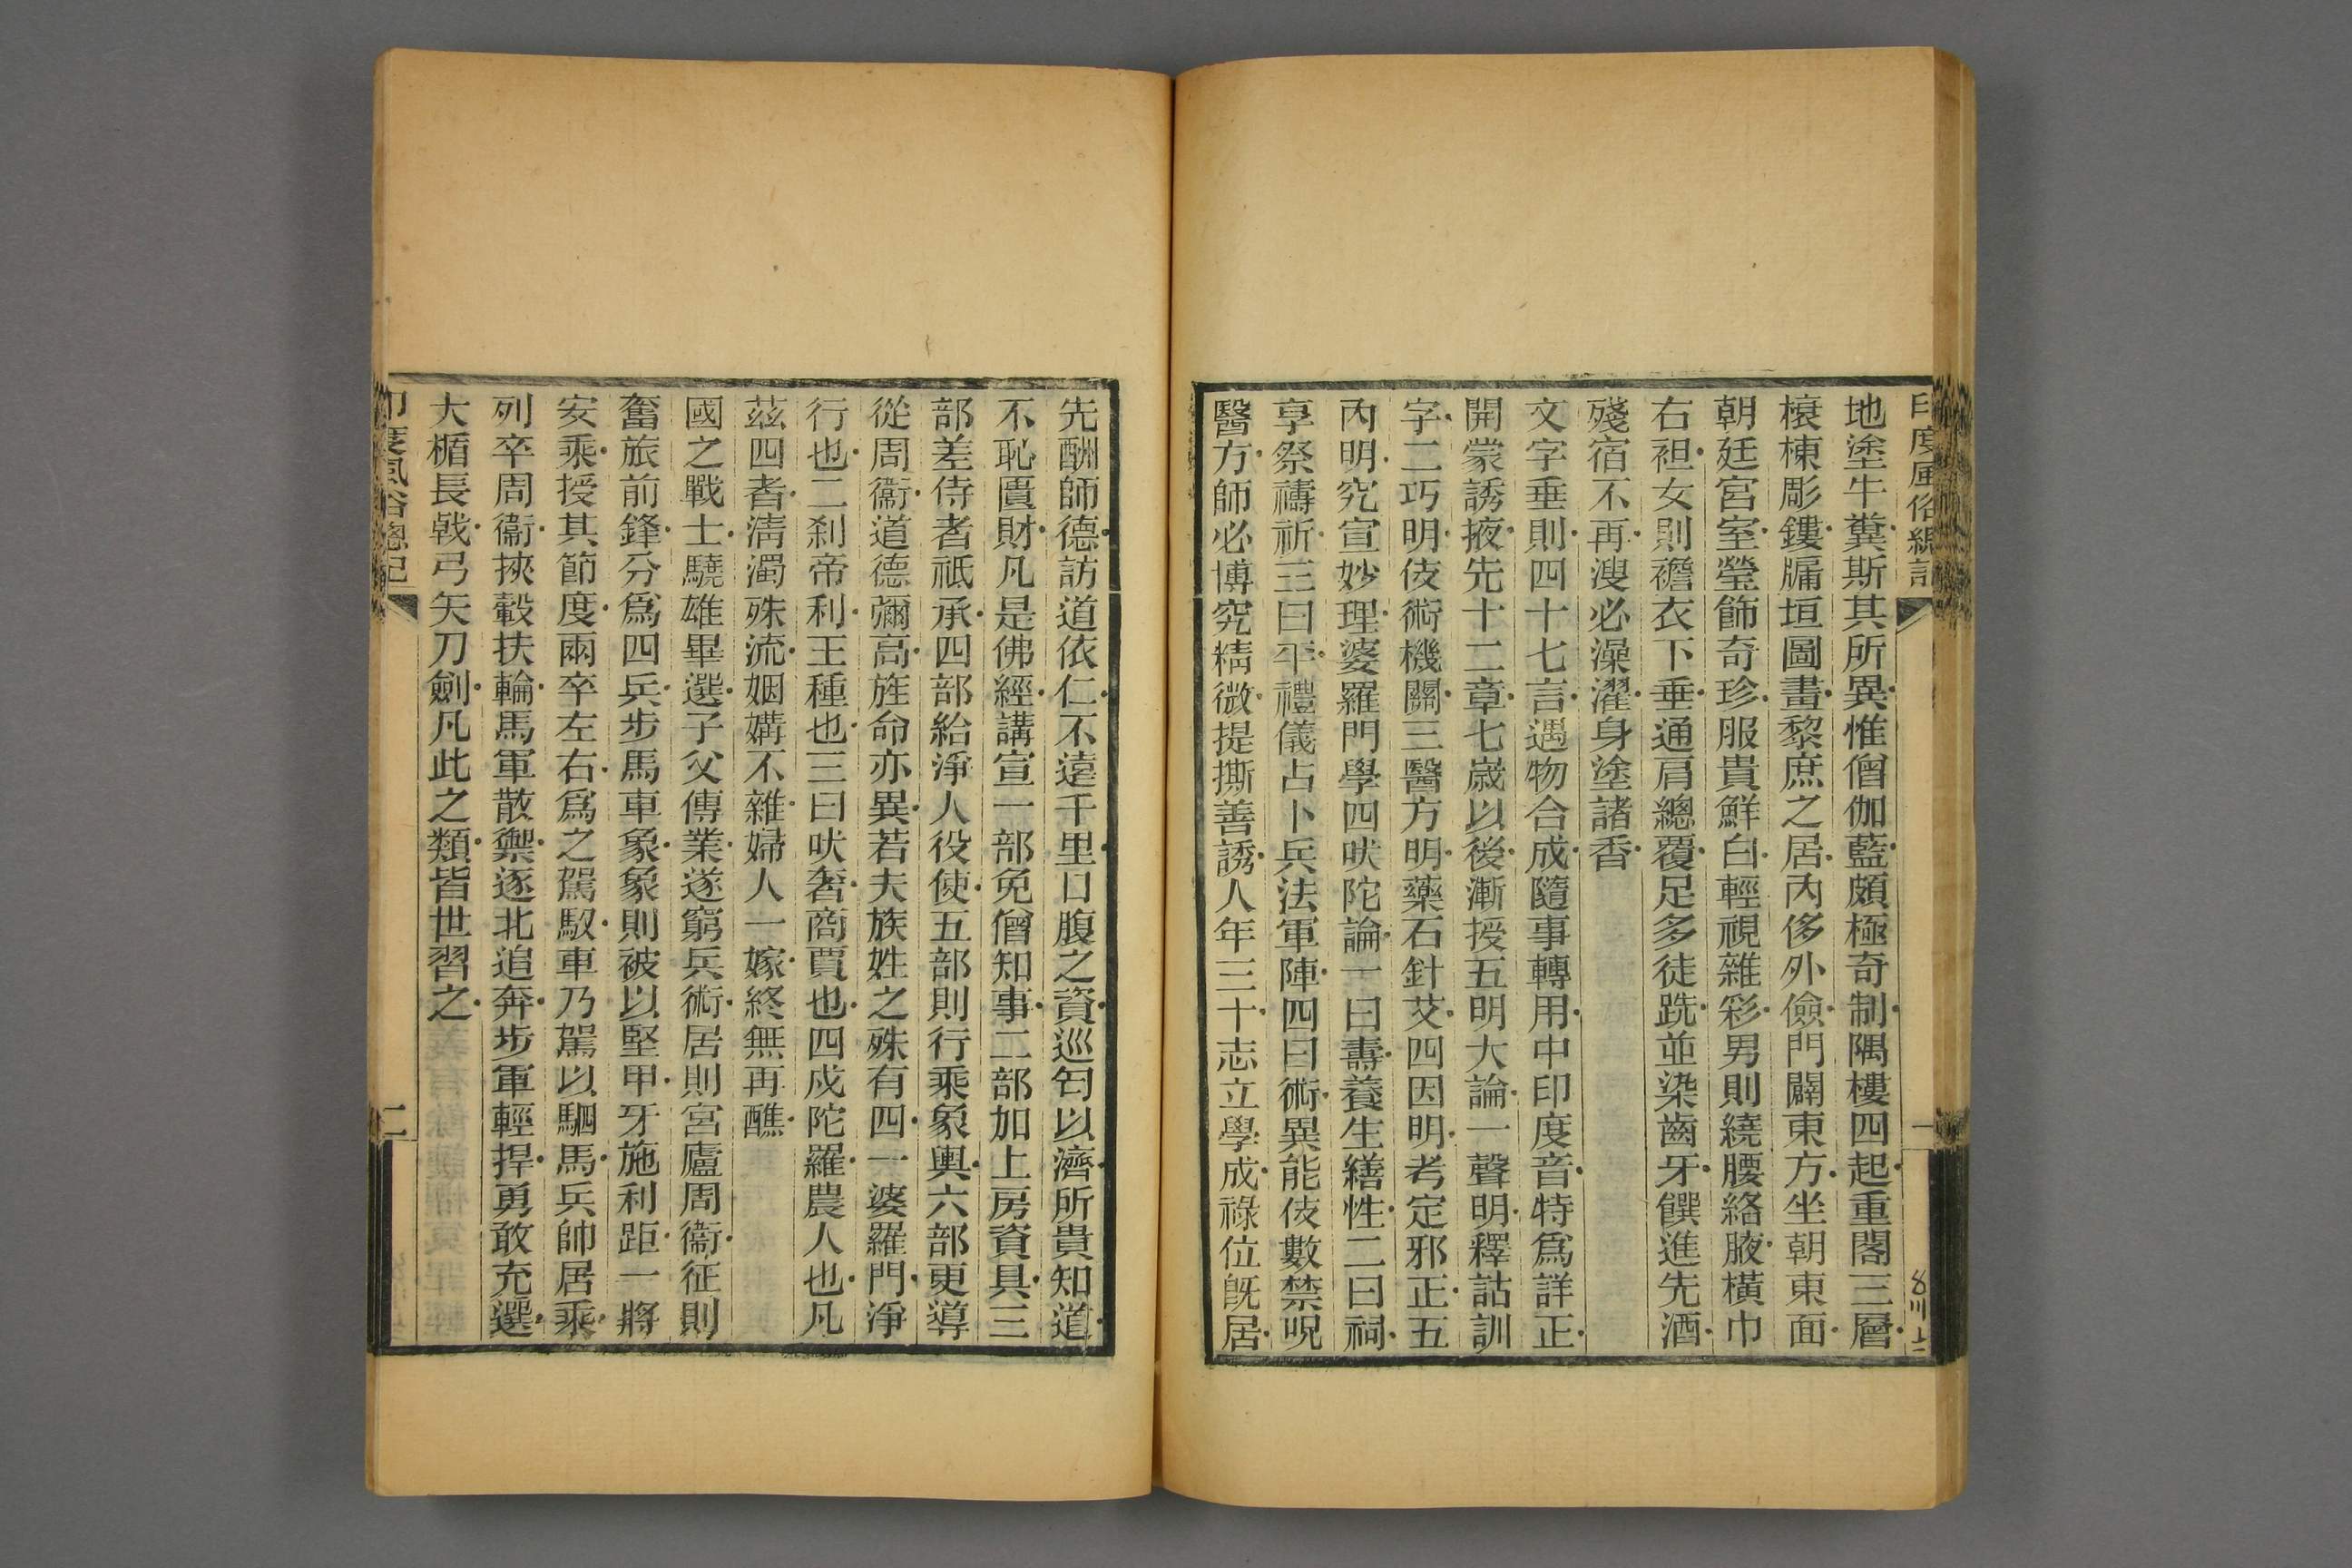 印度風俗總記
一
地塗牛糞斯其所異惟僧伽藍頗極奇制隅樓四起重閣三層
榱棟彫鏤牖垣圖畫黎庶之居內侈外儉門闢東方坐朝東面
朝廷宮室瑩飾奇珍服貴鮮白輕視雜彩男則繞腰絡腋橫巾
右袒女則襜衣下垂通肩總覆足多徒跣並染齒牙饌進先酒
殘宿不再溲必澡濯身塗諸香
文字垂則四十七言遇物合成隨事轉用中印度音特爲詳正
開蒙誘掖先十二章七歲以後漸授五明大論一聲明釋詁訓
字二巧明伎術機關三醫方明藥石針艾四因明考定邪正五
內明究宣妙理婆羅門學四吠陀論一曰壽養生繕性二曰祠
享祭禱祈三曰平禮儀占卜兵法軍陣四曰術異能伎數禁呪
醫方師必博究精微提撕善誘人年三十志立學成祿位旣居
先酬師德訪道依仁不遠千里口腹之資巡匄以濟所貴知道
不恥匱財凡是佛經講宣一部免僧知事二部加上房資具三
部差侍者祗承四部給淨人役使五部則行乘象輿六部更導
從周衞道德彌高旌命亦異若夫族姓之殊有四一婆羅門淨
行也二刹帝利王種也三曰吠奢商賈也四戍陀羅農人也凡
茲四者淸濁殊流姻媾不雜婦人一嫁終無再醮
國之戰士驍雄畢選子父傳業遂窮兵術居則宮廬周衞征則
奮旅前鋒分爲四兵步馬車象象則被以堅甲牙施利距一將
安乘授其節度兩卒左右爲之駕馭車乃駕以駟馬兵帥居乘
列卒周衞挾轂扶輪馬軍散禦逐北追奔步軍輕捍勇敢充選
大楯長戟弓矢刀劍凡此之類皆世習之
印度風俗總記
二